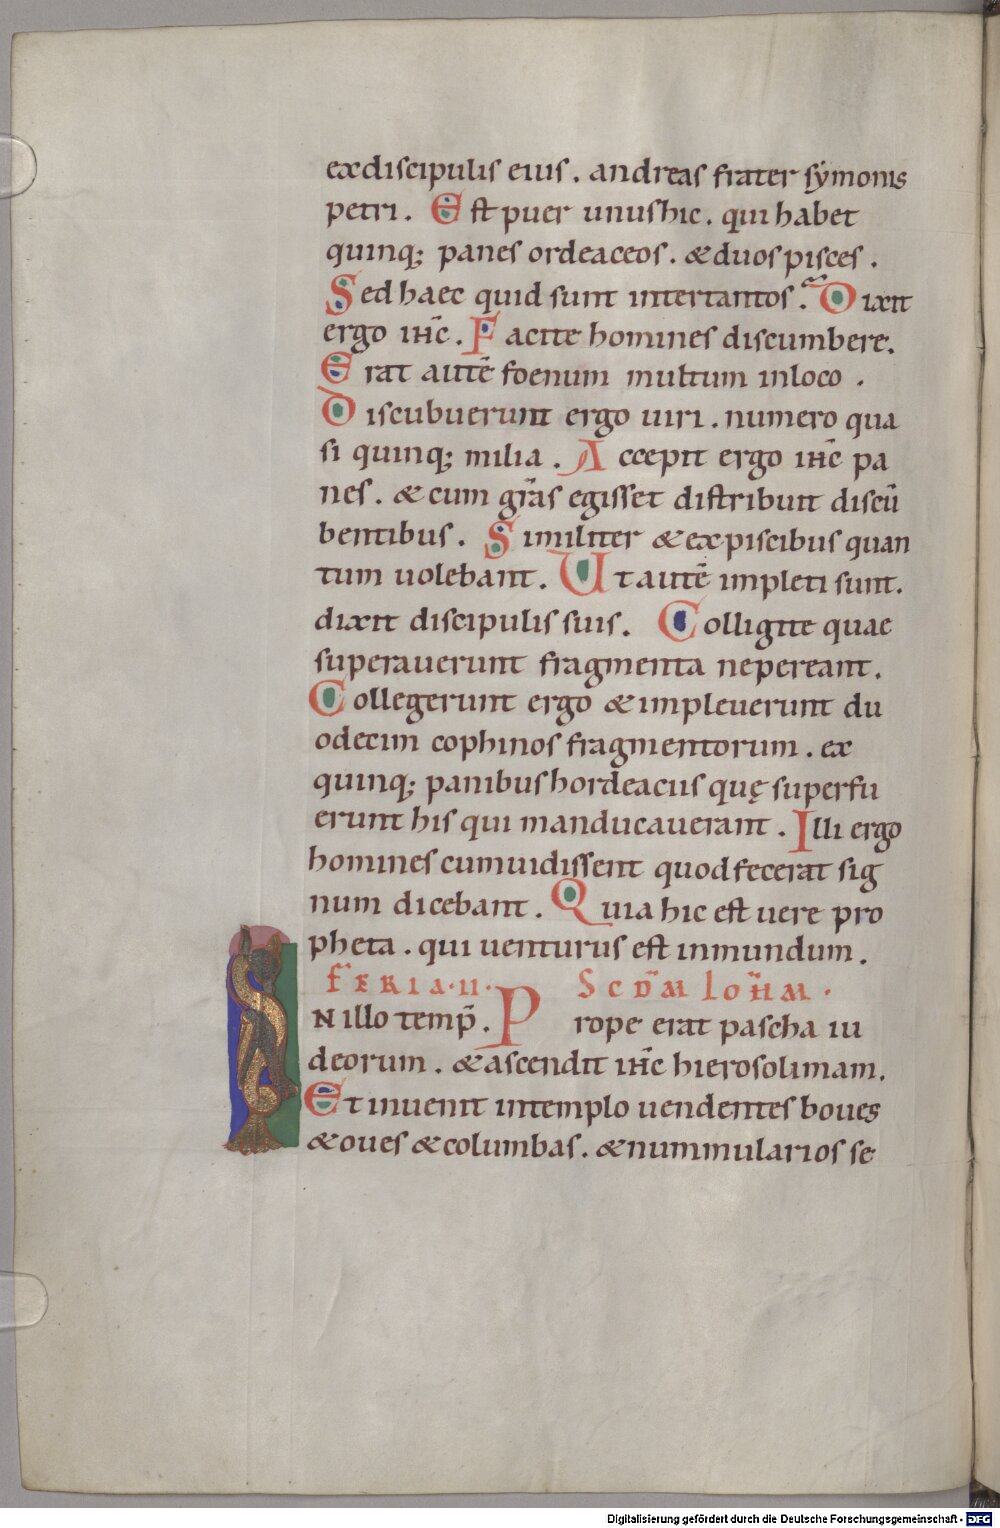 ex discipulis eius . andreas frater symonis
petri . Est puer unus hic . qui habet
quinq; panes ordeaceos . & duos pisces .
Sed haec quid sunt inter tantos . Dixit
ergo ihc̄ . Facite homines discumbere .
Erat autē foenum multum in loco .
Discubuerunt ergo uiri . numero qua
si quinq; milia . Accepit ergo ihc̄ pa
nes . & cum gr̄as egisset distribuit discū
bentibus . Similiter & ex piscibus quan
tum uolebant . Ut autē impleti sunt .
dixit discipulis suis . Colligite quae
superauerunt fragmenta ne pereant .
Collegerunt ergo & impleuerunt du
odecim cophinos fragmentorum . ex
quinq; panibus hordeaciis quę superfu
erunt his qui manducauerant . Illi ergo
homines cum uidissent quod fecerat sig
num dicebant . Quia hic est uere pro
pheta . qui uenturus est in mundum .
FERIA . II . SCDM̄ IOH̄M .
IN illo temp̄ . Prope erat pascha iu
deorum . & ascendit ihc̄ hierosolimam .
Et inuenit in templo uendentes boues
& oues & columbas . & nummularios se
Digitalisierung gefördert durch die Deutsche Forschungsgemeinschaft - DFG